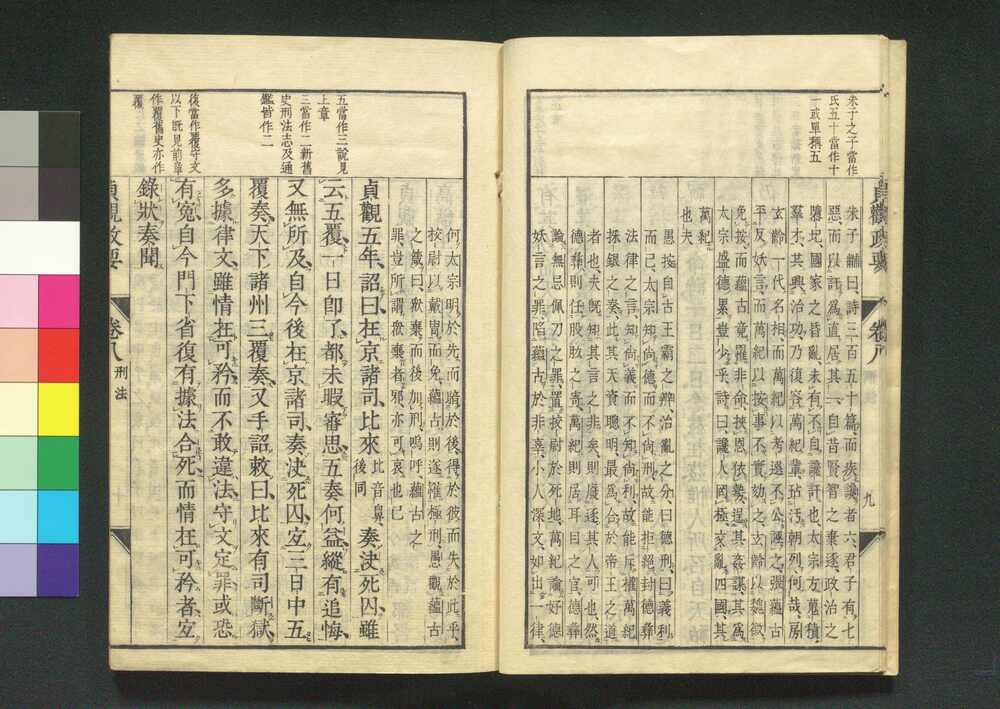 朱子之子當作
氏五十當作十
一或單稱五
貞觀政要
卷八
九
朱子黼曰詩三百五十篇而疾讒者六君子有七
惡而以訐爲直居其一自昔賢智之棄逐政治之
隳圮國家之昏亂未有不自讒訐也太宗方蒐積
羣才共興治功乃復容萬紀輩玷污朝列何哉房
玄齡一代名相而萬紀以考選不公譖之張蘊古
平反妖言而萬紀以按事不實劾之玄齡以魏徵
免按而蘊古竟罹非命挾恩依勢逞其姦謀其爲
太宗盛德累豈少乎詩曰讒人罔極交亂四國其
萬紀
也夫
愚按自古王霸之辨治亂之分曰德刑曰義利
而已太宗知尚德而不尚刑故能拒絕封德彝
法律之言知尚義而不知尚利故能斥權萬紀
採銀之奏此其天資聰明最爲合於帝王之道
者也夫既知其言之非矣則廢逐其人可也然
德彝則任股肱之寄萬紀則居耳目之官德彝
論無思佩刀之罪置按尉於死地萬紀論好德
妖言之罪陷蘊古於非辜小人深文如出一律
五當作三說見
上章
三當作二新舊
史刑法志及通
鑑皆作二
後當作覆守文
以下既見前章
作覆舊史亦作
覆
何太宗明於先而暗於後得於彼而失於此乎
按尉以戴冑而免蘊古則遂罹極刑愚觀蘊古
之箴曰衆棄而後加刑嗚呼蘊古之
罪豈所謂衆棄者邪亦可哀也已
貞觀五年詔曰在京諸司比來比音鼻後同奏決死囚雖
云五覆一日即了都未暇審思五奏何益縱有追悔
又無所及自今後在京諸司奏決死囚宜三日中五
覆奏天下諸州三覆奏又手詔敕曰比來有司斷獄
多據律文雖情在可矜而不敢違法守文定罪或恐
有冤自今門下省復有據法合死而情在可矜者宜
錄狀奏聞
貞觀政要
卷八
刑法